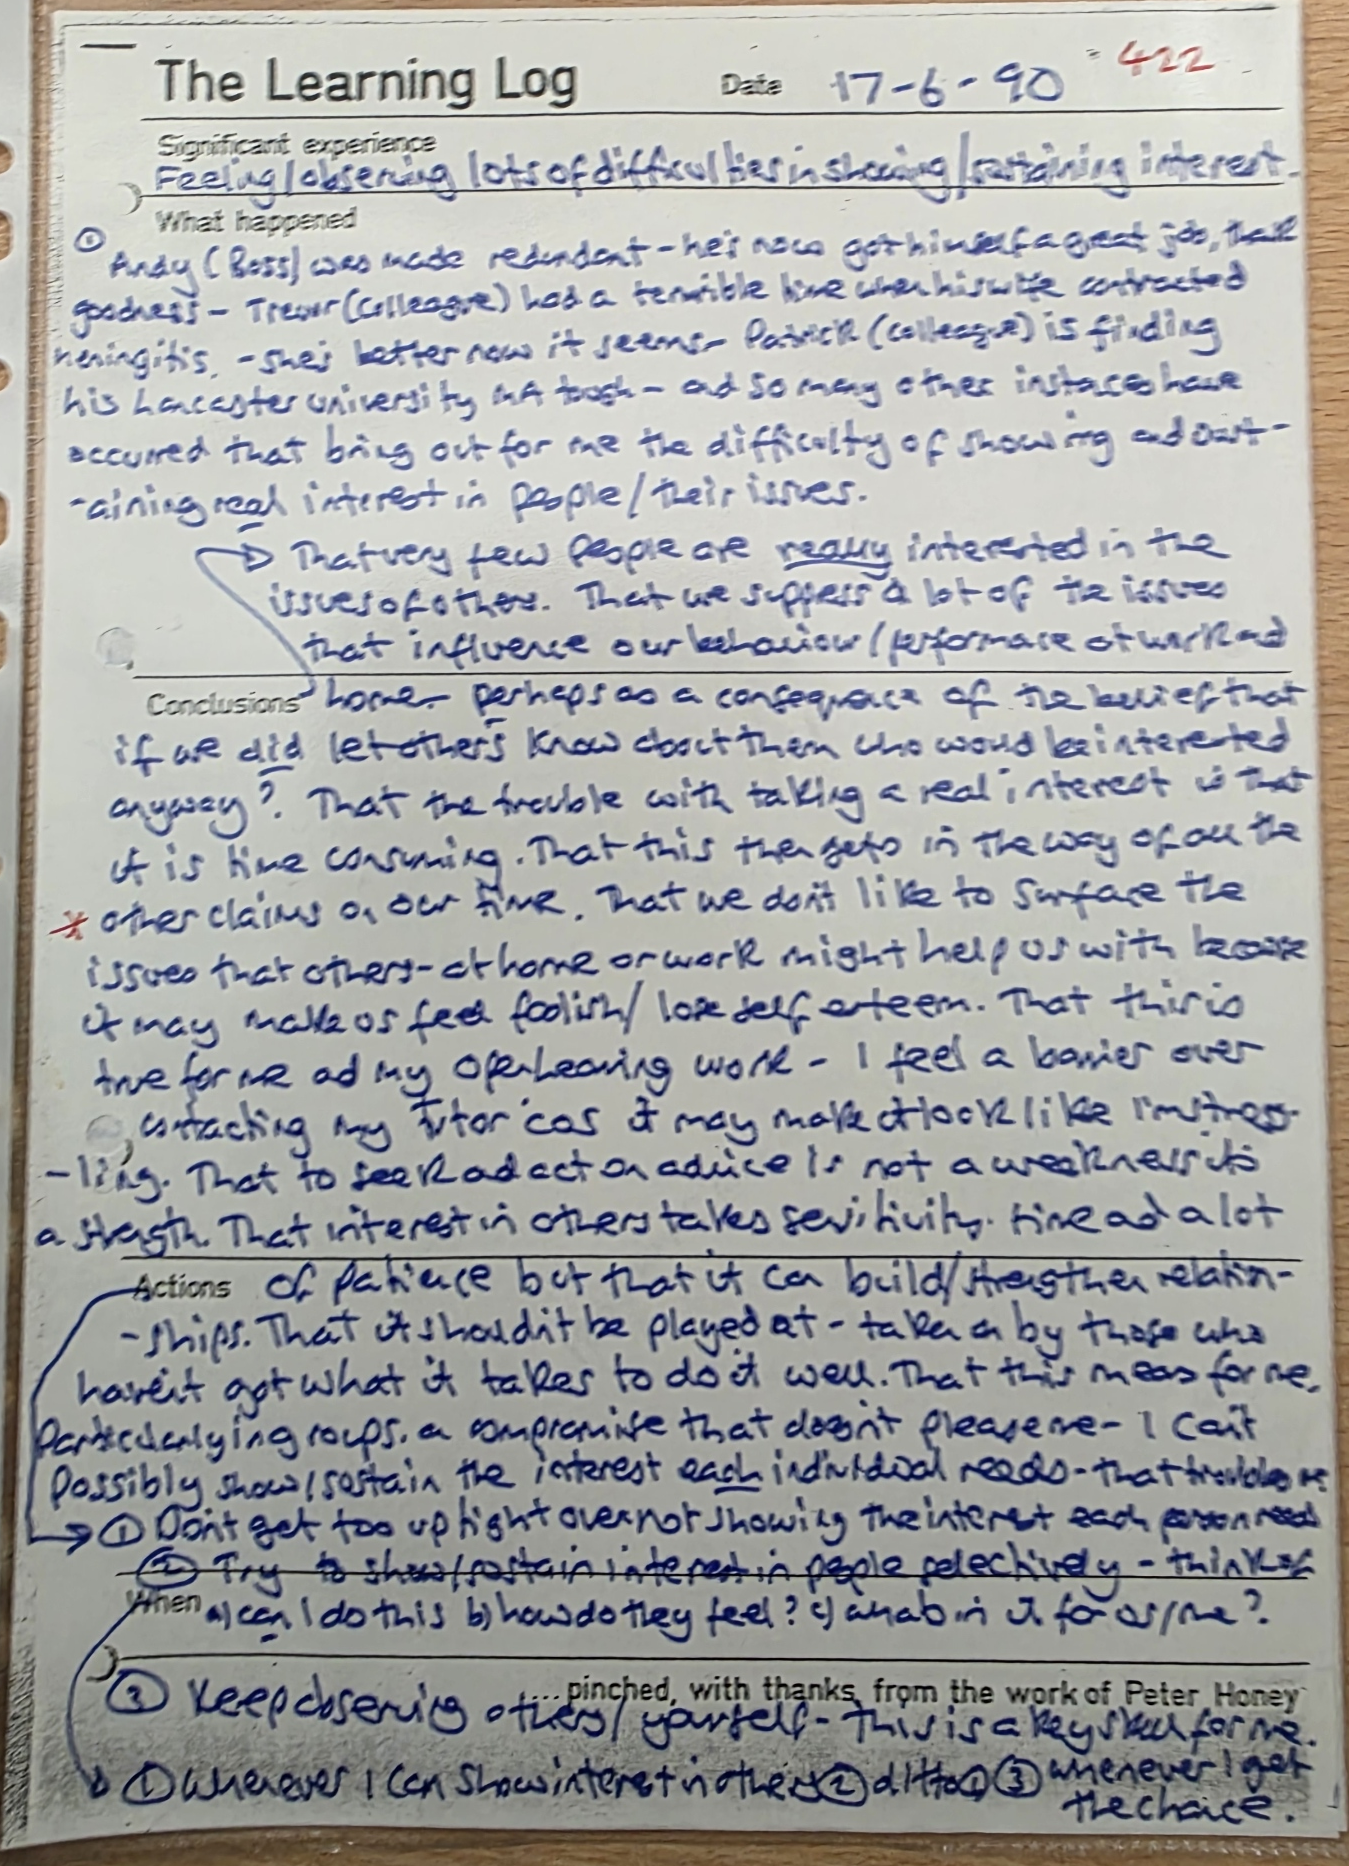 The Learning Log Date 17-6-90 422
Significant experience
Feeling/observing lots of difficulties in showing/sustaining interest.
What happened
① Andy (Boss) was made redundant - he's now got himself a great job, thank
goodness - Trevor (Colleague) had a terrible time when his wife contracted
meningitis, - she's better now it seems - Patrick (colleague) is finding
his Lancaster University MA tough - and so many other instances have
occurred that bring out for me the difficulty of showing and sust-
-aining real interest in people/their issues.
That very few people are really interested in the
issues of others. That we suppress a lot of the issues
that influence our behaviour/performance at work and
Conclusions home - perhaps as a consequence of the belief that
if we did let others know about them who would be interested
anyway? That the trouble with taking a real interest is that
it is time consuming. That this then gets in the way of all the
other claims on our time. That we don't like to surface the
issues that others - at home or work might help us with because
it may make us feel foolish/lose self esteem. That this is
true for me and my Open Learning work - I feel a barrier over
contacting my Tutor 'cos it may make it look like I'm strugg-
-ling. That to seek and act on advice is not a weakness its
a strength. That interest in others takes sensitivity, time and a lot
Actions of patience but that it can build/strengthen relation-
-ships. That it shouldn't be played at - taken on by those who
haven't got what it takes to do it well. That this means for me,
particularly in groups, a compromise that doesn't please me - I can't
possibly show/sustain the interest each individual needs - that troubles me
① Don't get too uptight over not showing the interest each person needs
② Try to show/sustain interest in people selectively - think of
When a) can I do this b) how do they feel? c) what's in it for us/me?
....pinched, with thanks, from the work of Peter Honey
③ Keep observing others/yourself - this is a key skill for me.
① Whenever I can show interest in others ② ditto ① ③ whenever I get
the chance.